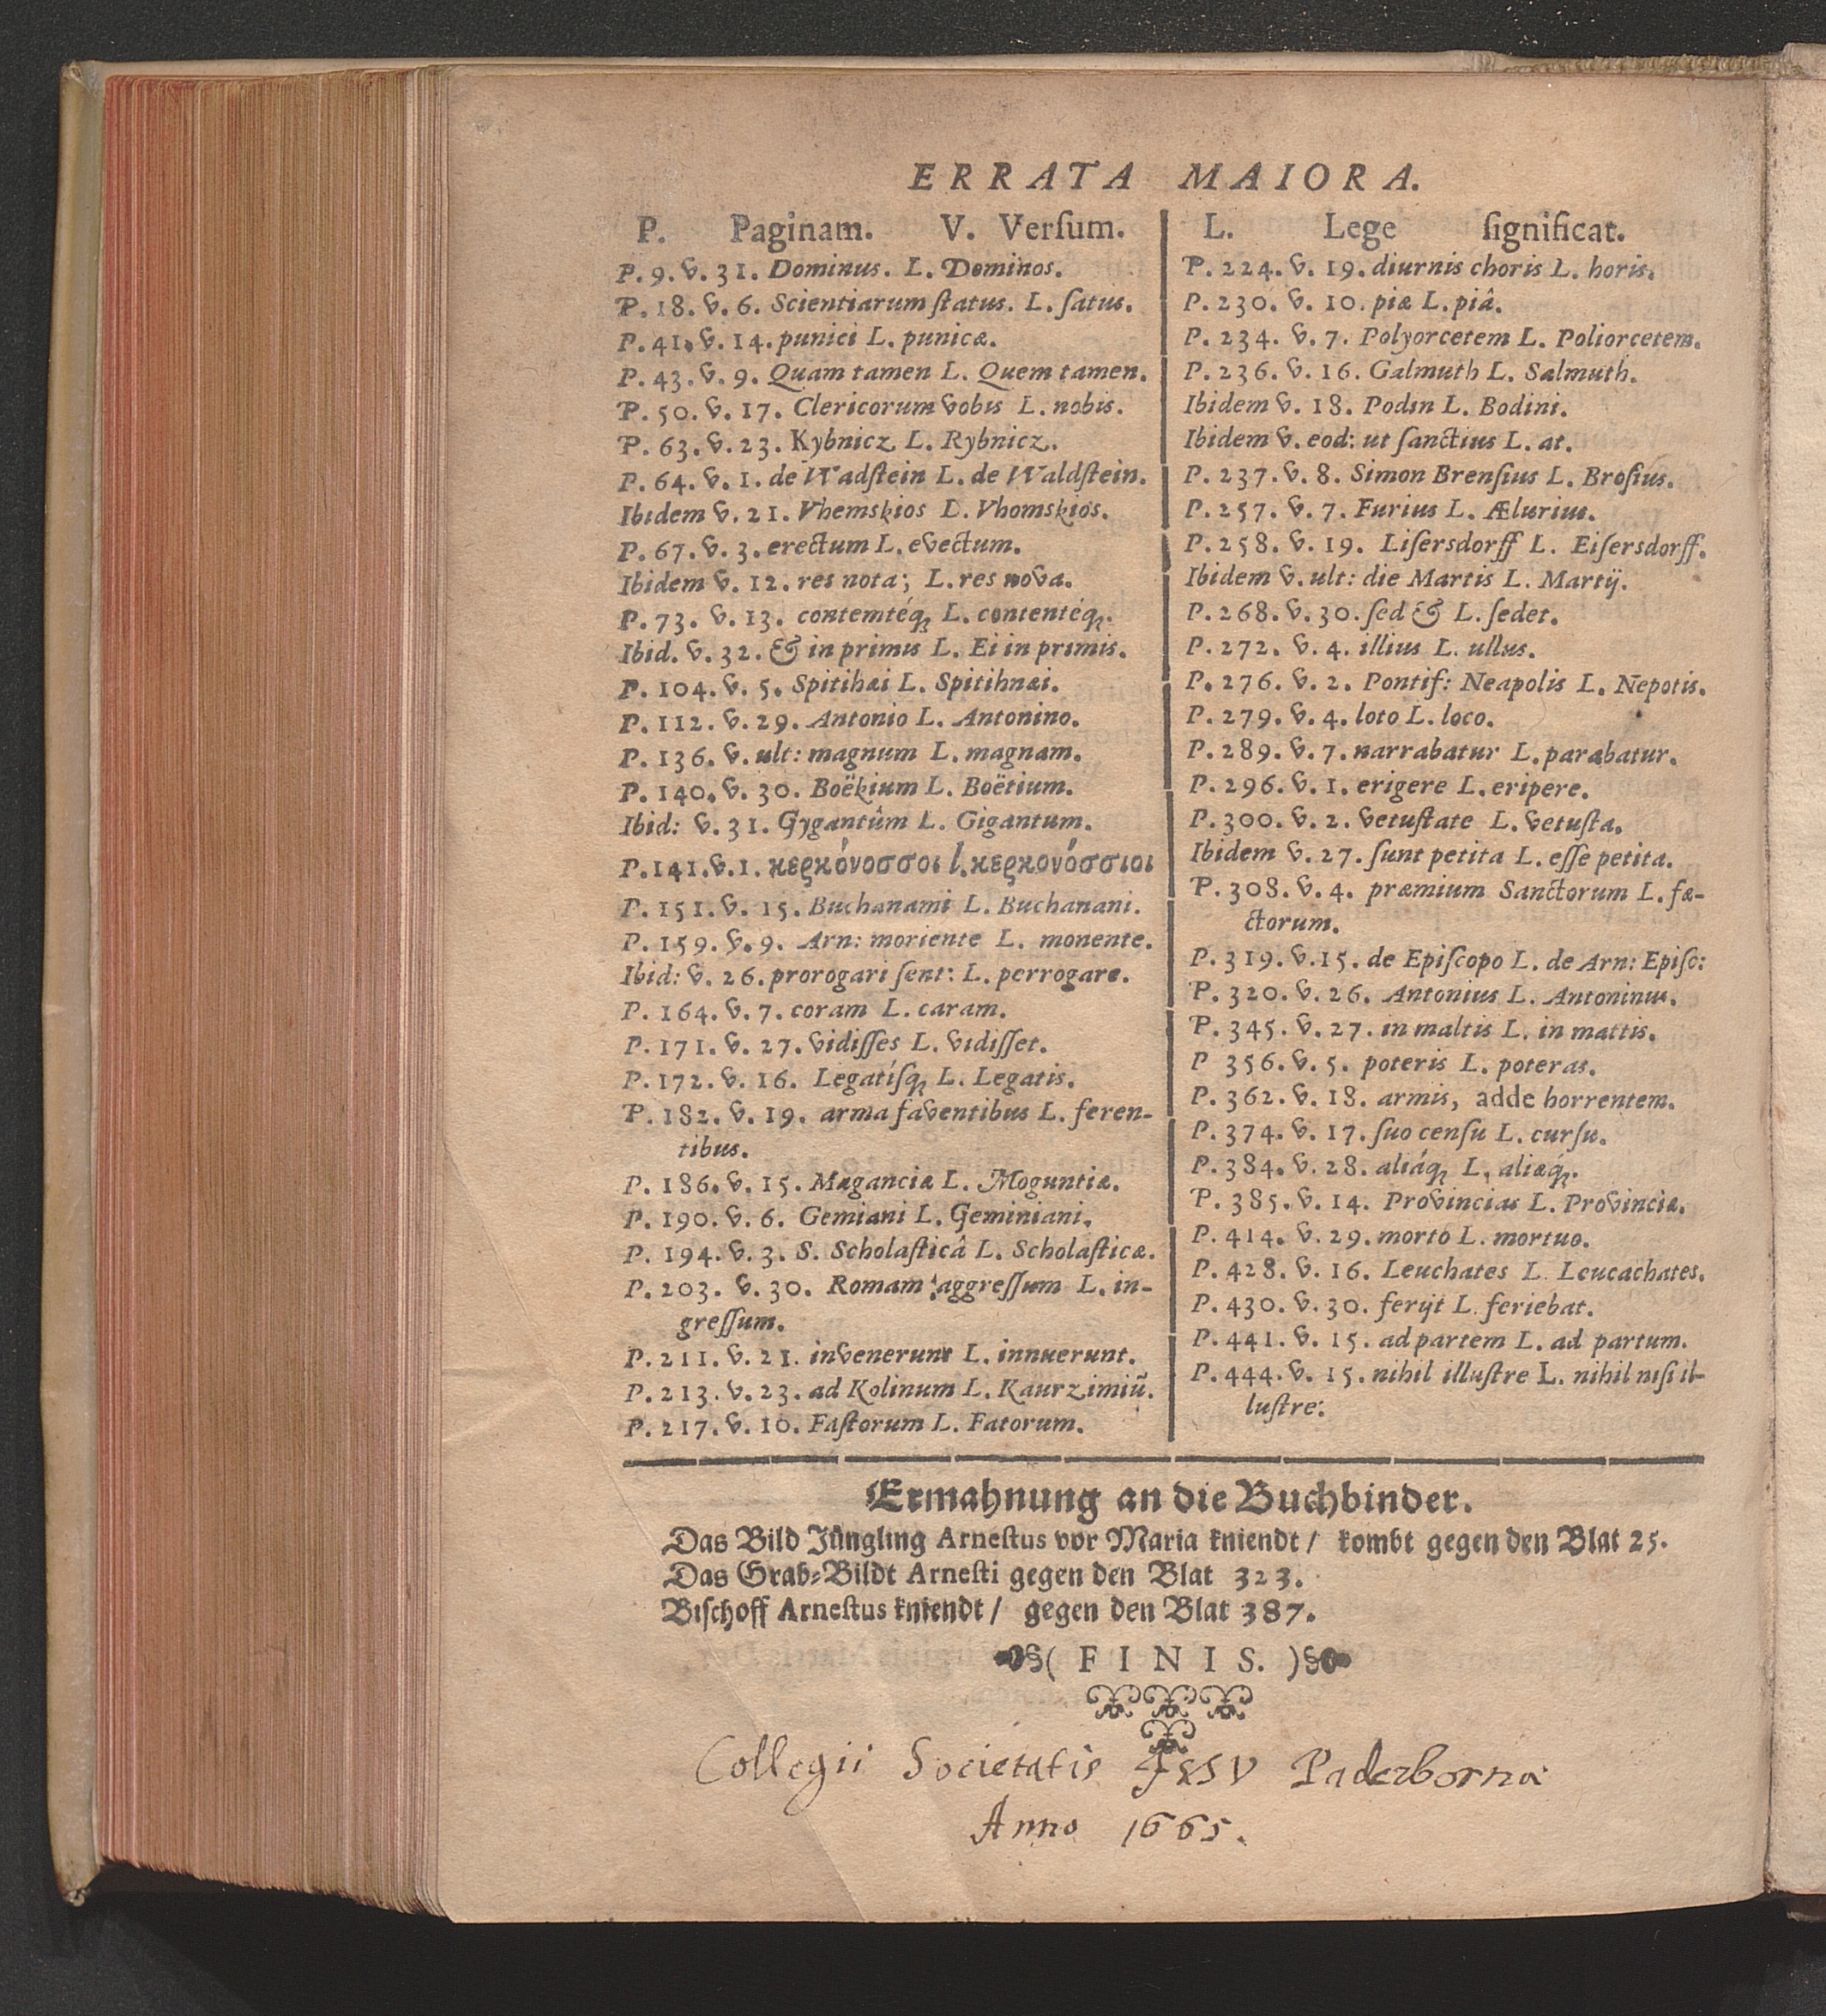 ERRATA MAIORA.
P. Paginam. V. Verſum.
P. 9. v. 31. Dominus. L. Dominos.
P. 18. v. 6. Scientiarum ſtatus. L. ſatus.
P. 41. v. 14. punici L. punicæ.
P. 43. v. 9. Quam tamen L. Quem tamen.
P. 50. v. 17. Clericorum vobis L. nobis.
P. 63. v. 23. Kybnicz L. Rybnicz.
P. 64. v. 1. de Wadſtein L. de Waldſtein.
Ibidem v. 21. Vhemskios L. Vhomskios.
P. 67. v. 3. erectum L. evectum.
Ibidem v. 12. res nota; L. res nova.
P. 73. v. 13. contemtéq; L. contentéq;.
Ibid. v. 32. & in primis L. Ei in primis.
P. 104. v. 5. Spitihæi L. Spitihnæi.
P. 112. v. 29. Antonio L. Antonino.
P. 136. v. ult: magnum L. magnam.
P. 140. v. 30. Boëkium L. Boëtium.
Ibid: v. 31. Gygantûm L. Gigantum.
P. 141. v. 1. κερκόνοσσοι l. κερκονόσσιοι
P. 151. v. 15. Buchanami L. Buchanani.
P. 159. v. 9. Arn: moriente L. monente.
Ibid: v. 26. prorogari ſent: L. perrogare.
P. 164. v. 7. coram L. caram.
P. 171. v. 27. vidiſſes L. vidiſſet.
P. 172. v. 16. Legatíſq; L. Legatis.
P. 182. v. 19. arma faventibus L. feren-
tibus.
P. 186. v. 15. Maganciæ L. Moguntiæ.
P. 190. v. 6. Gemiani L. Geminiani.
P. 194. v. 3. S. Scholaſticâ L. Scholaſticæ.
P. 203. v. 30. Romam aggreſſum L. in-
greſſum.
P. 211. v. 21. invenerunt L. innuerunt.
P. 213. v. 23. ad Kolinum L. Kaurzimiũ.
P. 217. v. 10. Faſtorum L. Fatorum.
L. Lege ſignificat.
P. 224. v. 19. diurnis choris L. horis.
P. 230. v. 10. piæ L. piâ.
P. 234. v. 7. Polyorcetem L. Poliorcetem.
P. 236. v. 16. Galmuth L. Salmuth.
Ibidem v. 18. Podin L. Bodini.
Ibidem v. eod: ut ſanctius L. at.
P. 237. v. 8. Simon Brenſius L. Broſius.
P. 257. v. 7. Furius L. Ælurius.
P. 258. v. 19. Liſersdorff L. Eiſersdorff.
Ibidem v. ult: die Martis L. Martij.
P. 268. v. 30. ſed & L. ſedet.
P. 272. v. 4. illius L. ullus.
P. 276. v. 2. Pontif: Neapolis L. Nepotis.
P. 279. v. 4. loto L. loco.
P. 289. v. 7. narrabatur L. parabatur.
P. 296. v. 1. erigere L. eripere.
P. 300. v. 2. vetuſtate L. vetuſta.
Ibidem v. 27. ſunt petita L. eſſe petita.
P. 308. v. 4. præmium Sanctorum L. fæ-
ctorum.
P. 319. v. 15. de Epiſcopo L. de Arn: Epiſc:
P. 320. v. 26. Antonius L. Antoninus.
P. 345. v. 27. in maltis L. in mattis.
P 356. v. 5. poteris L. poteras.
P. 362. v. 18. armis, adde horrentem.
P. 374. v. 17. ſuo cenſu L. curſu.
P. 384. v. 28. aliáq; L, aliæq́;.
P. 385. v. 14. Provincias L. Provinciæ.
P. 414. v. 29. morto L. mortuo.
P. 428. v. 16. Leuchates L Leucachates.
P. 430. v. 30. ferijt L. feriebat.
P. 441. v. 15. ad partem L. ad partum.
P. 444. v. 15. nihil illuſtre L. nihil niſi il-
luſtre:
Ermahnung an die Buchbinder.
Das Bild Jüngling Arneſtus vor Maria kniendt / kombt gegen den Blat 25.
Das Grab-Bildt Arneſti gegen den Blat 323.
Biſchoff Arneſtus kniendt / gegen den Blat 387.
( FINIS. )
Collegii Societatis JESV Paderbornæ
Anno 1665.